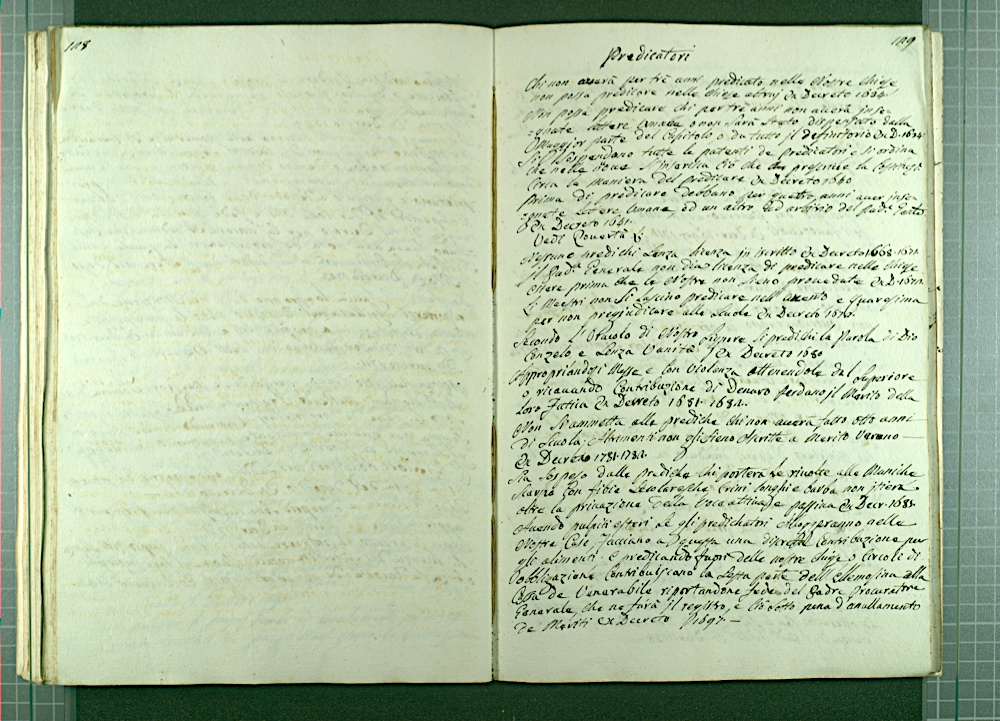 128
129
Predicatori
Chi non averà per trè anni predicato nelle Nostre Chiese
non possa predicare nelle chiese altrui Ex Decreto 1634
Non possa predicare chi per trè anni non averà inse-
=gnate lettere Umane o non sarà stato dispensato dalla
Maggior parte del Capitolo o da tutto il definitorio Ex D. 1634
Si suspendano tutte le patenti de predicatori e si ordina
che nelle nove s'inserisca ciò che prescrive la
circa la maniera del predicare Ex Decreto 1640
Prima di predicare debbano per quattro anni aver inse-
=gnate lettere Umane, ed un altro ad arbitrio del Pad.
Ex Decreto 1641.
Vedi Coverta
Nessuno predichi senza licenza in iscritto Ex Decreto 1668.
Il Pad. Generale non dia licenza di predicare nelle chiese
estere prima che le Nostre non sieno provedute Ex D.
Li Maestri non si lascino predicare nell' avento e quaresima
per non pregiudicare alle Scuole Ex Decreto
Secondo l'Oracolo di Nostro Signore si predichi la Parola di Dio
con zelo e senza Vanità Ex Decreto 1680
Appropriandosi Messe e con Violenza ottenendole dal Superiore
o ricavando Contribuzione di Denaro perdano il Merito della
loro fatica Ex Decreto 1681. 1684.
Non si ammetta alle prediche chi non averà fatto otto anni
di Scuola; Altrimenti non gli sieno ascritte a Merito Veruno —
Ex Decreto 1731.
Sia sospeso dalle prediche chi porterà le rivolte alle Maniche
scarpe con fibie Secolaresche Crini longhi e barba non
oltre la privazione della voce attiva e passiva Ex Decr. 1681
Avendo pulpiti esteri se gli predichatori
Nostre Case facciano a questa una discreta Contribuzione per
gli alimenti. E predicando fuori delle nostre chiese o Circoli di
obbligazione Contribuiscano la sesta parte dell' elemosina alla
Cassa de Venerabile riportandone fede del Padre Procuratore
Generale, che ne farà il registro, e ciò sotto pena d'anullamento
de Meriti Ex Decreto 1697. —